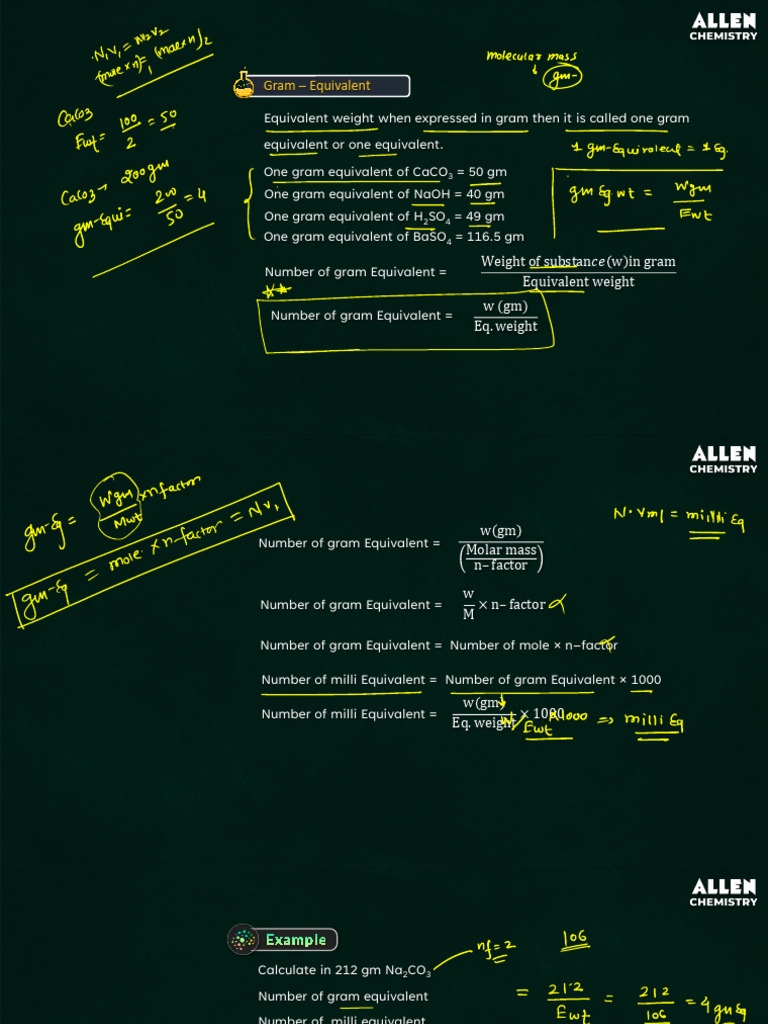 ALLEN
CHEMISTRY
N₁V₁ = N₂V₂
(mole×n)₁ = (mole×n)₂
molecular mass
↓
gm-
Gram – Equivalent
CaCO3
Ewt = 100/2 = 50
CaCO3 → 200gm
gm-Equi = 200/50 = 4
Equivalent weight when expressed in gram then it is called one gram
equivalent or one equivalent.
1 gm-Equivalent = 1 Eq.
One gram equivalent of CaCO₃ = 50 gm
One gram equivalent of NaOH = 40 gm
One gram equivalent of H₂SO₄ = 49 gm
One gram equivalent of BaSO₄ = 116.5 gm
gm Eq wt = Wgm/Ewt
Number of gram Equivalent = Weight of substance(w)in gram/Equivalent weight
Number of gram Equivalent = w (gm)/Eq. weight
ALLEN
CHEMISTRY
gm-Eq = Wgm/Mwt × n factor
gm-Eq = mole × n-factor = NV₁
N·Vml = milli Eq
Number of gram Equivalent = w(gm)/(Molar mass/n– factor)
Number of gram Equivalent = w/M × n– factor
Number of gram Equivalent = Number of mole × n–factor
Number of milli Equivalent = Number of gram Equivalent × 1000
Number of milli Equivalent = w(gm)/Eq. weight × 1000
W/Ewt ×1000 ⇒ milli Eq
ALLEN
CHEMISTRY
Example
Calculate in 212 gm Na₂CO₃
nf = 2
106
Number of gram equivalent
= 212/Ewt = 212/106 = 4 gm Eq
Number of milli equivalent